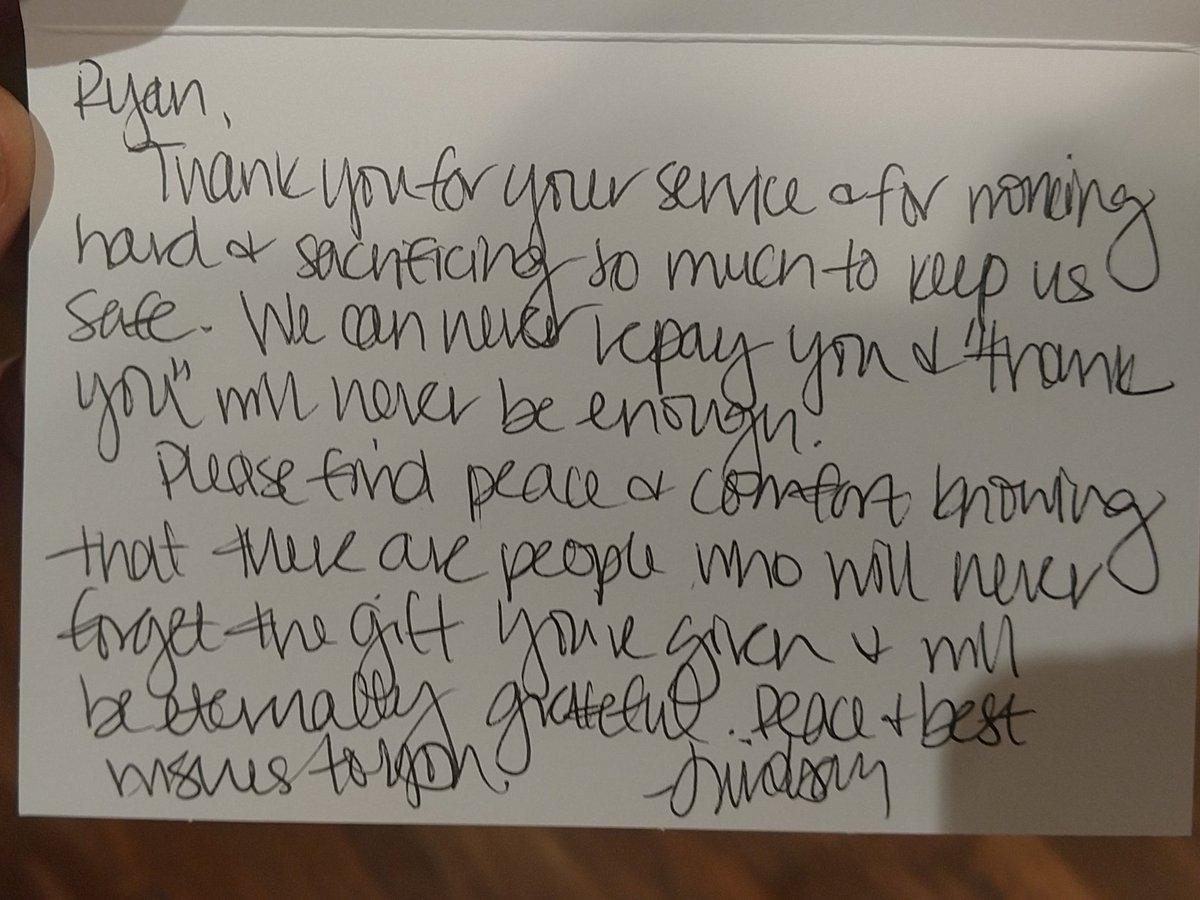 Ryan,
Thank you for your service & for working
hard & sacrificing so much to keep us
safe. We can never repay you & "thank
you" will never be enough.
Please find peace & comfort knowing
that there are people who will never
forget the gift you've given & will
be eternally grateful. Peace & best
wishes to you.
-Lindsay